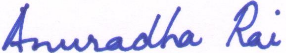 Anuradha Rai